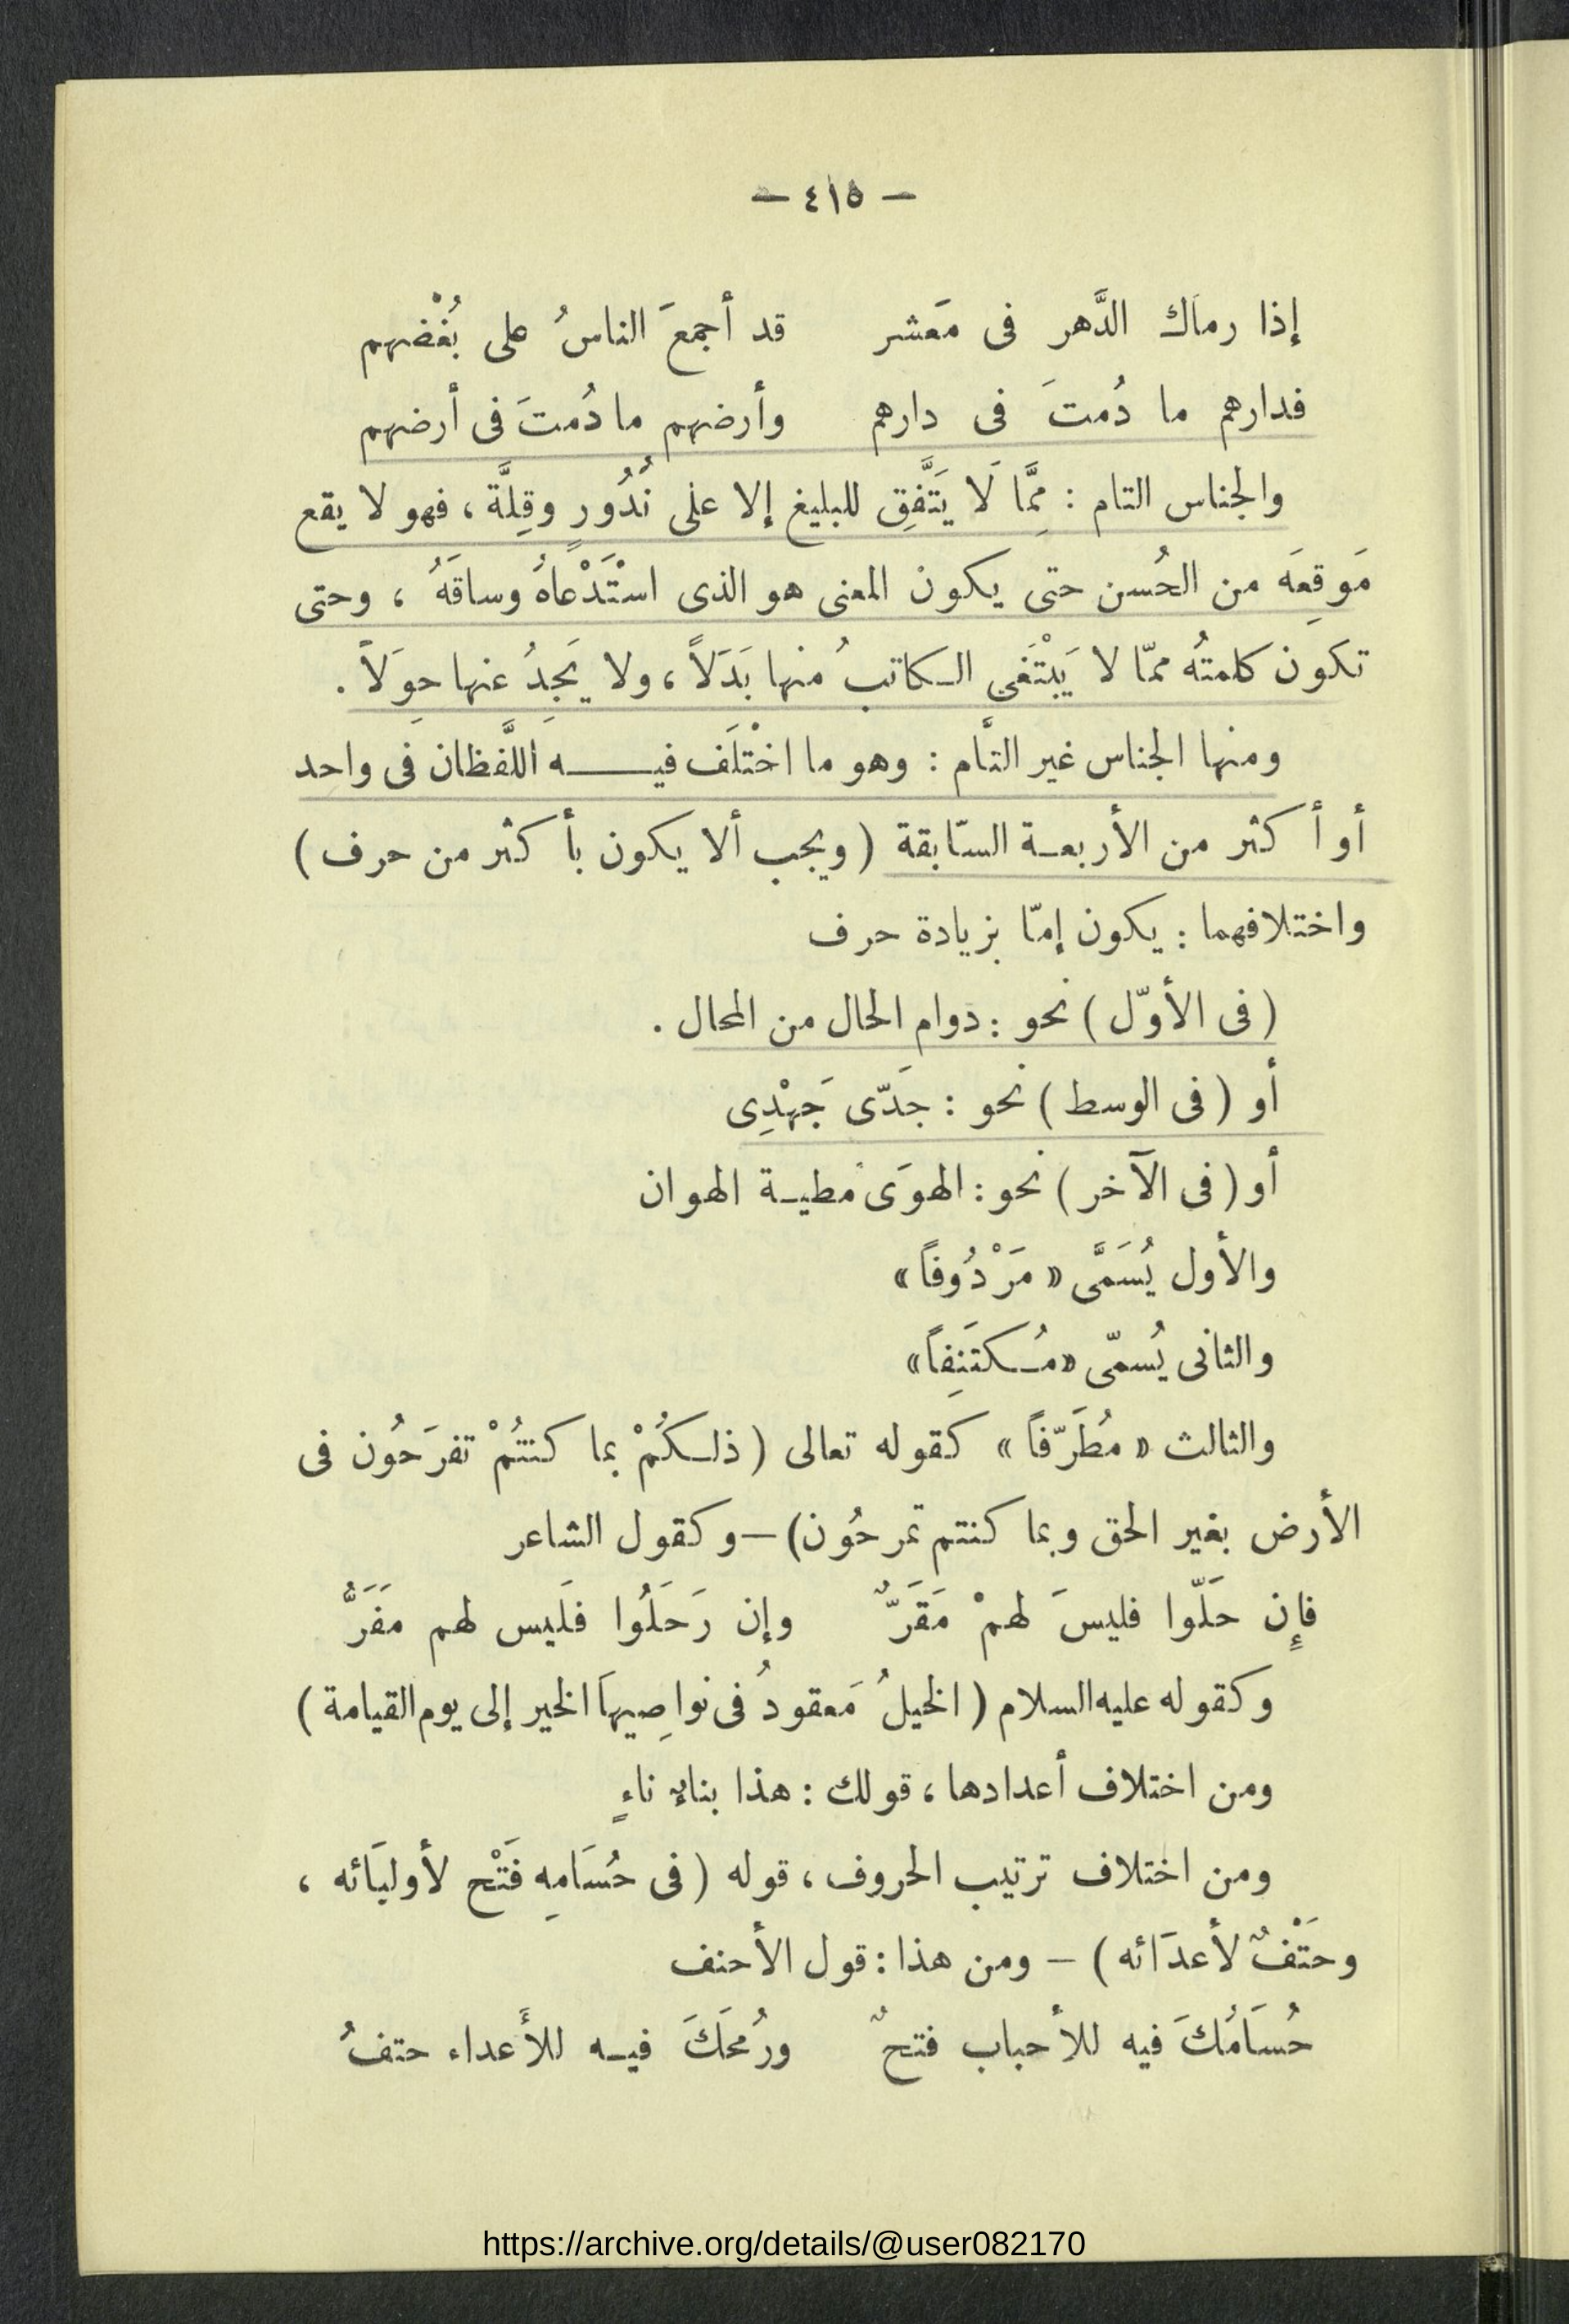 — ٤١٥ —
إذا رماك الدَّهر فى مَعشر قد أجمعَ الناسُ على بُغْضهم
فدارهم ما دُمتَ فى دارهم وأرضهم ما دُمتَ فى أرضهم
والجناس التام : مِمَّا لَا يَتَّفِق للبليغ إلا على نُدُورٍ وقِلَّة ، فهو لا يقع
مَوقِعَه من الحُسن حتى يكون المعنى هو الذى اسْتَدْعاهُ وساقَهُ ، وحتى
تكون كلمتُه ممّا لا يَبْتَغى الكاتبُ منها بَدَلاً ، ولا يَجِدُ عنها حِوَلاً .
ومنها الجناس غير التَّام : وهو ما اخْتلَف فيــه اللَّفظان فى واحد
أو أكثر من الأربعة السّابقة ( ويجب ألا يكون بأكثر من حرف )
واختلافهما : يكون إمّا بزيادة حرف
( فى الأوّل ) نحو : دوام الحال من المحال .
أو ( فى الوسط ) نحو : جَدّى جَهْدِى
أو ( فى الآخر ) نحو : الهوَى مطية الهوان
والأول يُسَمَّى « مَرْدُوفاً »
والثانى يُسمّى « مُكتَنِفاً »
والثالث « مُطَرّفاً » كقوله تعالى ( ذلكُمْ بما كنتُمْ تفرَحُون فى
الأرض بغير الحق وبما كنتم تمرحُون ) — وكقول الشاعر
فإن حَلّوا فليسَ لهمْ مَقَرّ وإن رَحَلُوا فلَيس لهم مَفَرُّ
وكقوله عليه السلام ( الخيلُ مَعقودُ فى نواصِيهاَ الخير إلى يوم القيامة )
ومن اختلاف أعدادها ، قولك : هذا بناءٌ ناءٍ
ومن اختلاف ترتيب الحروف ، قوله ( فى حُسَامِهِ فَتْح لأوليَائه ،
وحَتْفٌ لأعدَائه ) — ومن هذا : قول الأحنف
حُسَامُكَ فيه للأحباب فتحٌ ورُمحَكَ فيه للأَعداء حتفُ
https://archive.org/details/@user082170